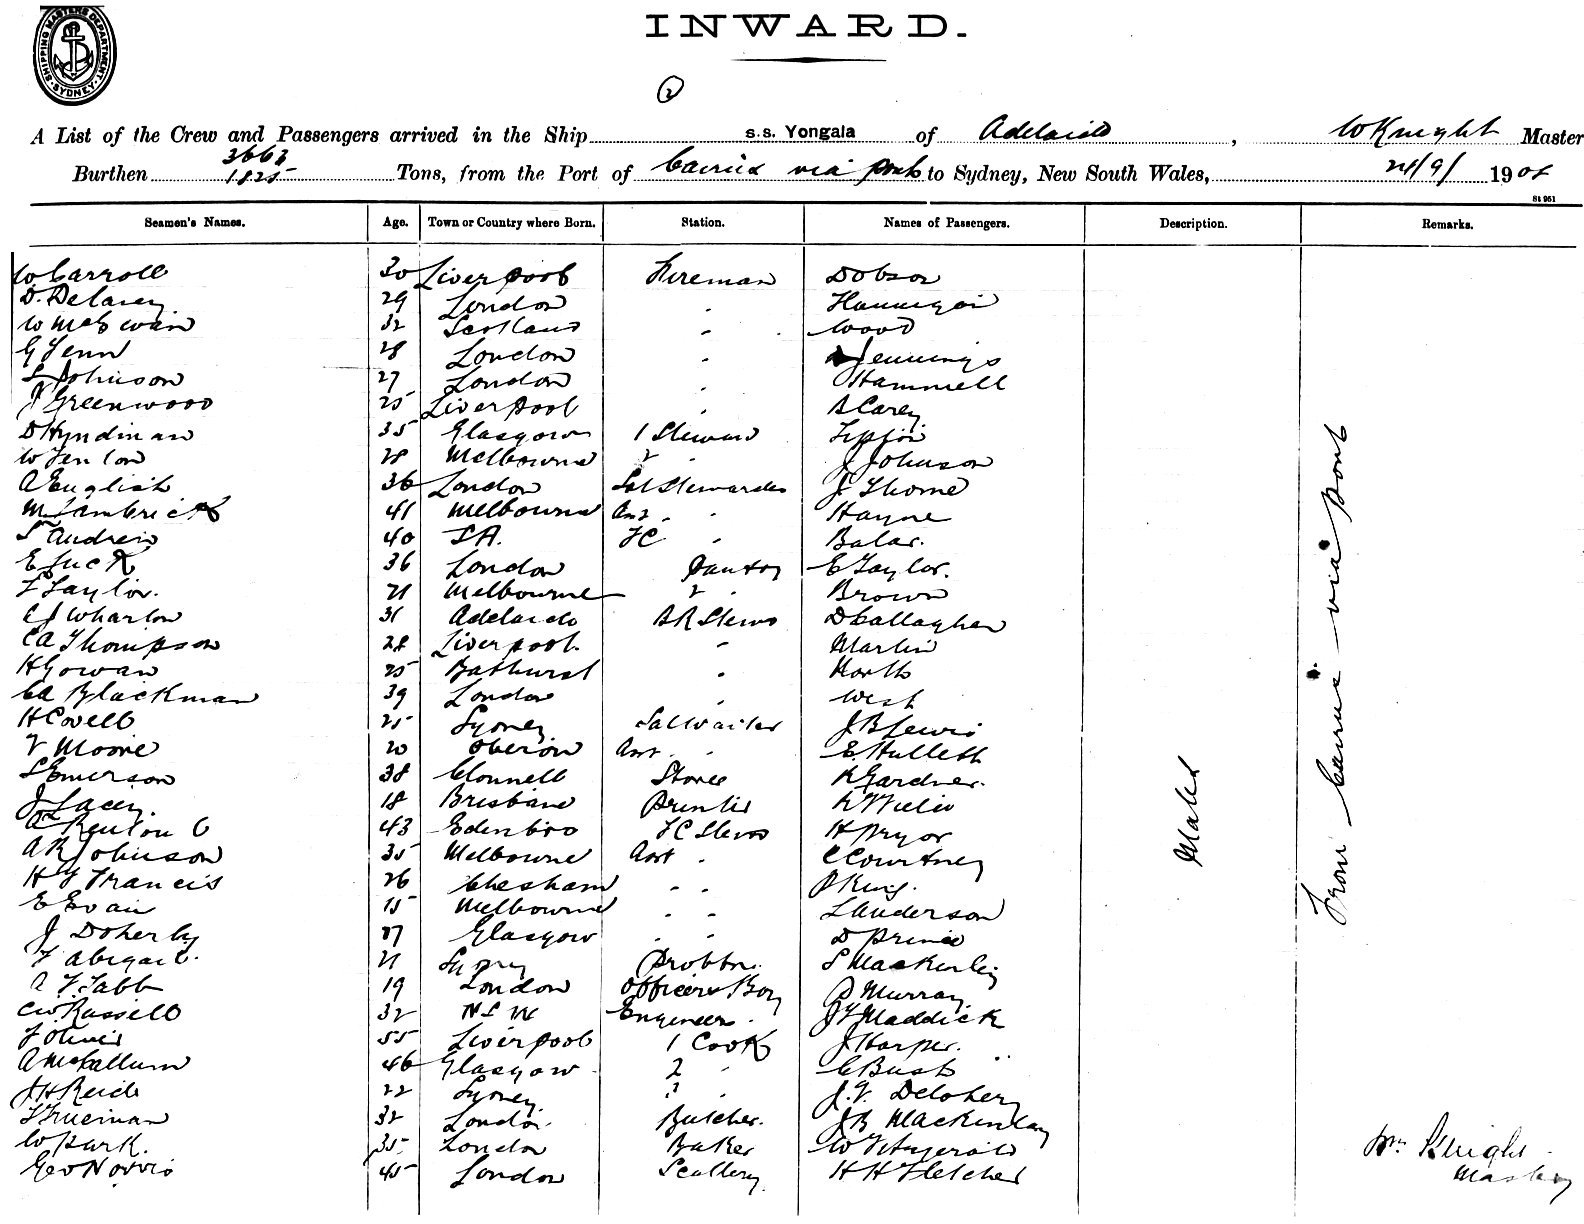 SHIPPING MASTERS DEPARTMENT. SYDNEY.
INWARD.
2
A List of the Crew and Passengers arrived in the Ship s.s. Yongala of Adelaide, W Knight Master
3663
Burthen 1825 Tons, from the Port of Cairns via ports to Sydney, New South Wales, 24/9/ 190
St 951
Seamen's Names. Age. Town or Country where Born. Station. Names of Passengers. Description. Remarks.
W Carroll 30 Liverpool Fireman Dobson
D. Delaney 29 London " Hannigan
W McEwain 32 Scotland " Wood
G Fenn 28 London " Jennings
S Johnson 27 London " Hammell
J Greenwood 25 Liverpool " Carey
D Hyndman 35 Glasgow 1 Steward
W Fenton 28 Melbourne 2 " J Johnson
A English 36 London Sal Stewardess J Thorne
M Lambrick 41 Melbourne " Hayne
S Andrew 40 S.A. FC " Balar.
E Luck 36 London Pantry E Taylor.
F Taylor. 21 Melbourne 2 " Brown
C J Wharton 31 Adelaide B R Stewd D Callaghan
CA Thompson 28 Liverpool. " Martin
H Gowan 25 Bathurst " North
Ed Blackman 39 London " West
H Covell 25 Sydney Sal Waiter J B Lewis
V Moore 20 Oberon Asst. " E Hulleth
S Emerson 38 Clonnell Stores R Gardner.
J Lacey. 18 Brisbane R
A Renton C 43 Edinbro FC Stewd H Pryor
A R Johnson 35 Melbourne Asst " C Courtney
H G Francis 26 Chesham " " P King.
E Evan 15 Melbourne " " L Anderson
J Doherty 27 Glasgow " " D Prince
F Abigail. 21 Sydney S Mackinley
A F Tabb 19 London Officers Boy P Murray
CW Russell 32 N S W Engineers " J F Maddick
F Oliver 55 Liverpool 1 Cook J Harper.
A McCallum 46 Glasgow 2 " C Bush
J H Reid 22 Sydney 3 " J. V. Delohery
F Trueman 32 London Butcher. J B Mackinlay
W Park. 35 London Baker W Fitzgerald
Geo Norris 45 London Scullery. H H Fletcher
Males
From Cairns via ports
Wm Knight
Master